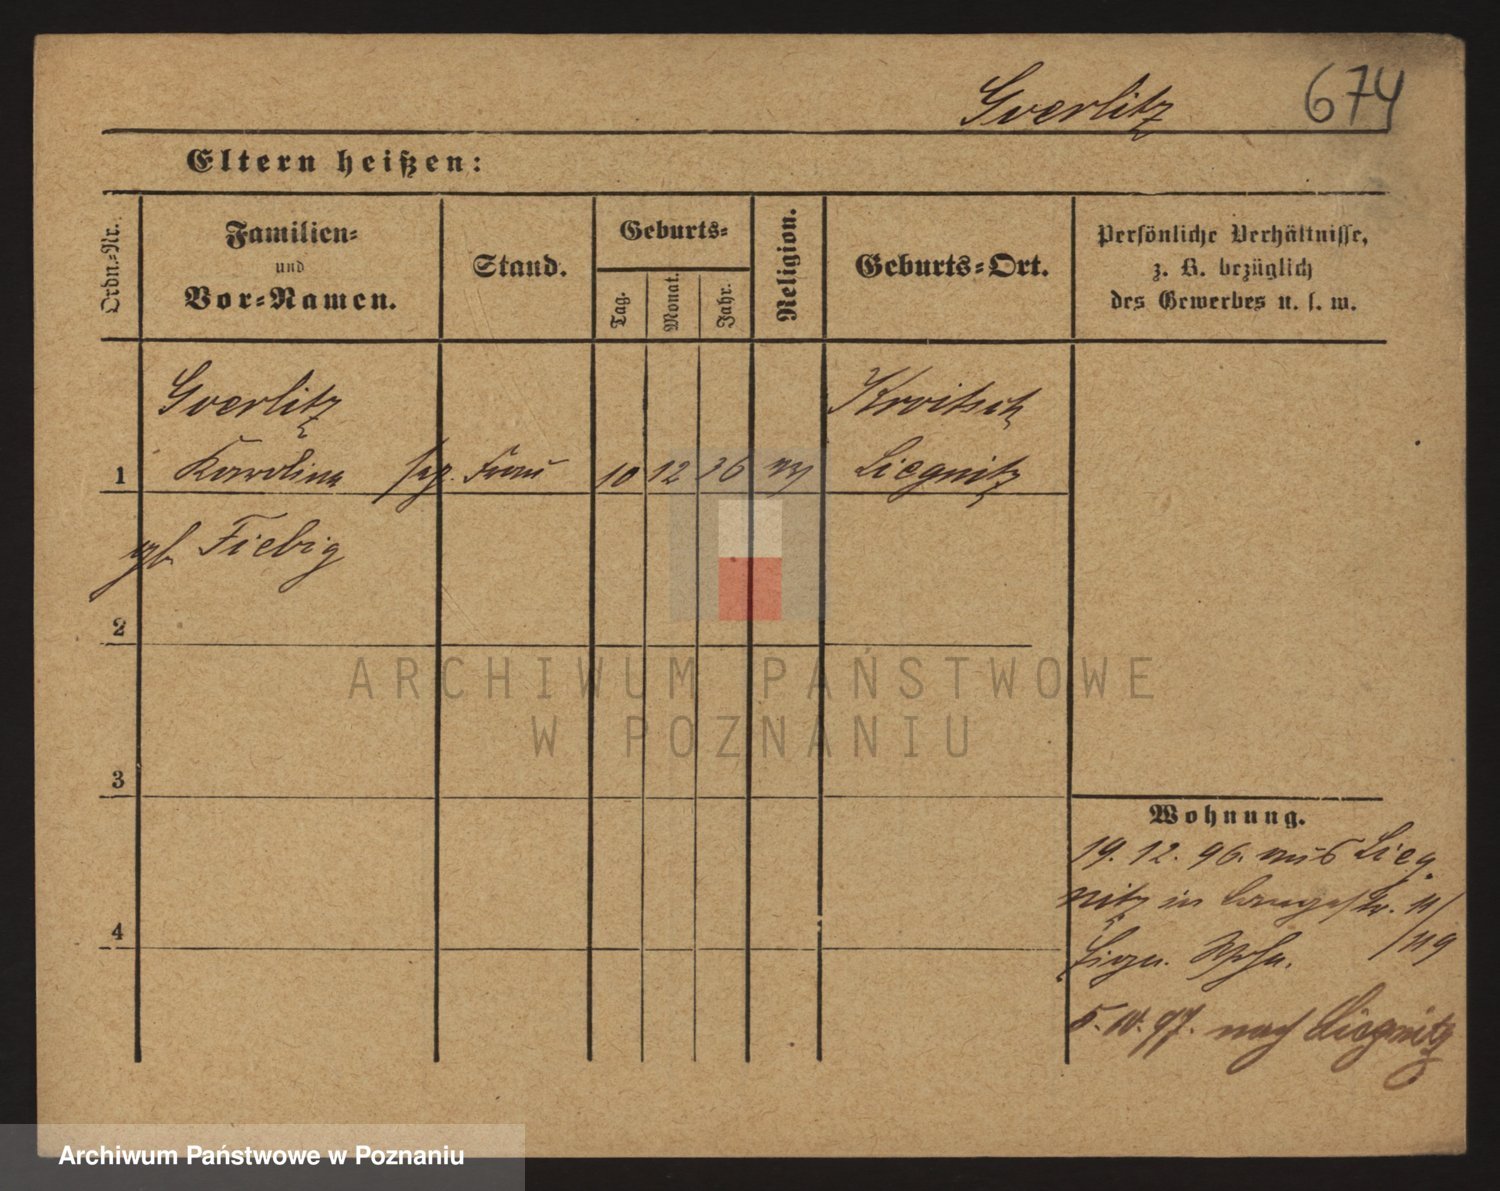 Goerlitz 674
Eltern heißen:
Ordn.-Nr.
Familien-
und
Vor-Namen.
Stand.
Geburts-
Tag.
Monat.
Jahr.
Religion.
Geburts-Ort.
Persönliche Verhältnisse,
z. B. bezüglich
des Gewerbes u. s. w.
Goerlitz Kroitsch
1 Karoline Frau 10 12 36 Liegnitz
gb. Fiebig
2
3
4
Wohnung.
19. 12. 96. aus Lieg
nitz in Langestr. 11/
5. 10. 97. nach Liegnitz
ARCHIWUM PAŃSTWOWE
W POZNANIU
Archiwum Państwowe w Poznaniu